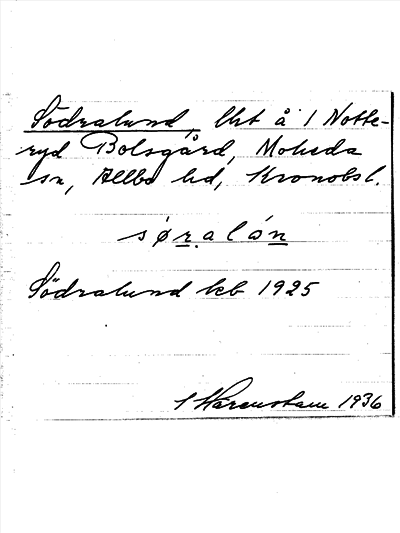 Södralund, lht å 1 Notte-
ryd Bolsgård, Moheda
sn, Allbo hd, Kronobsl.
søralón
Södralund kb 1925
Harenstam 1936